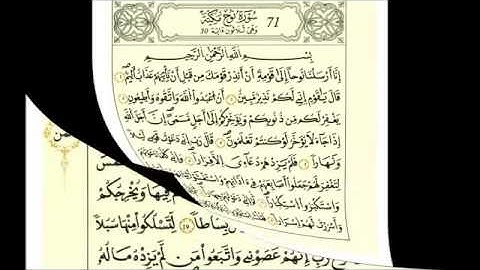 سُورَةُ نُوحٍ مَكِّيَّة 71
وَهِيَ ثَلَاثُونَ ءَايَة 30
بِسْمِ اللَّهِ الرَّحْمَٰنِ الرَّحِيمِ
إِنَّا أَرْسَلْنَا نُوحًا إِلَىٰ قَوْمِهِ أَنْ أَنذِرْ قَوْمَكَ مِن قَبْلِ أَن يَأْتِيَهُمْ عَذَابٌ أَلِيمٌ ١
قَالَ يَٰقَوْمِ إِنِّي لَكُمْ نَذِيرٌ مُّبِينٌ ٢ أَنِ اعْبُدُوا اللَّهَ وَاتَّقُوهُ وَأَطِيعُونِ ٣
يَغْفِرْ لَكُم مِّن ذُنُوبِكُمْ وَيُؤَخِّرْكُمْ إِلَىٰ أَجَلٍ مُّسَمًّى إِنَّ أَجَلَ اللَّهِ
إِذَا جَاءَ لَا يُؤَخَّرُ لَوْ كُنتُمْ تَعْلَمُونَ ٤ قَالَ رَبِّ إِنِّي دَعَوْتُ قَوْمِي
وَنَهَارًا ٥ فَلَمْ يَزِدْهُمْ دُعَاءِي إِلَّا فِرَارًا ٦ وَإِنِّي كُلَّمَا
لِتَغْفِرَ لَهُمْ جَعَلُوا أَصَٰبِعَهُمْ فِي ءَاذَانِهِمْ
وَاسْتَكْبَرُوا اسْتِكْبَارًا ٧ فِيهَا وَيُخْرِجُكُمْ
وَأَسْرَرْتُ لَهُمْ إِسْرَارًا بِسَاطًا ١٩ لِّتَسْلُكُوا مِنْهَا سُبُلًا
رَّبِّ إِنَّهُمْ عَصَوْنِي وَاتَّبَعُوا مَن لَّمْ يَزِدْهُ مَالُهُ